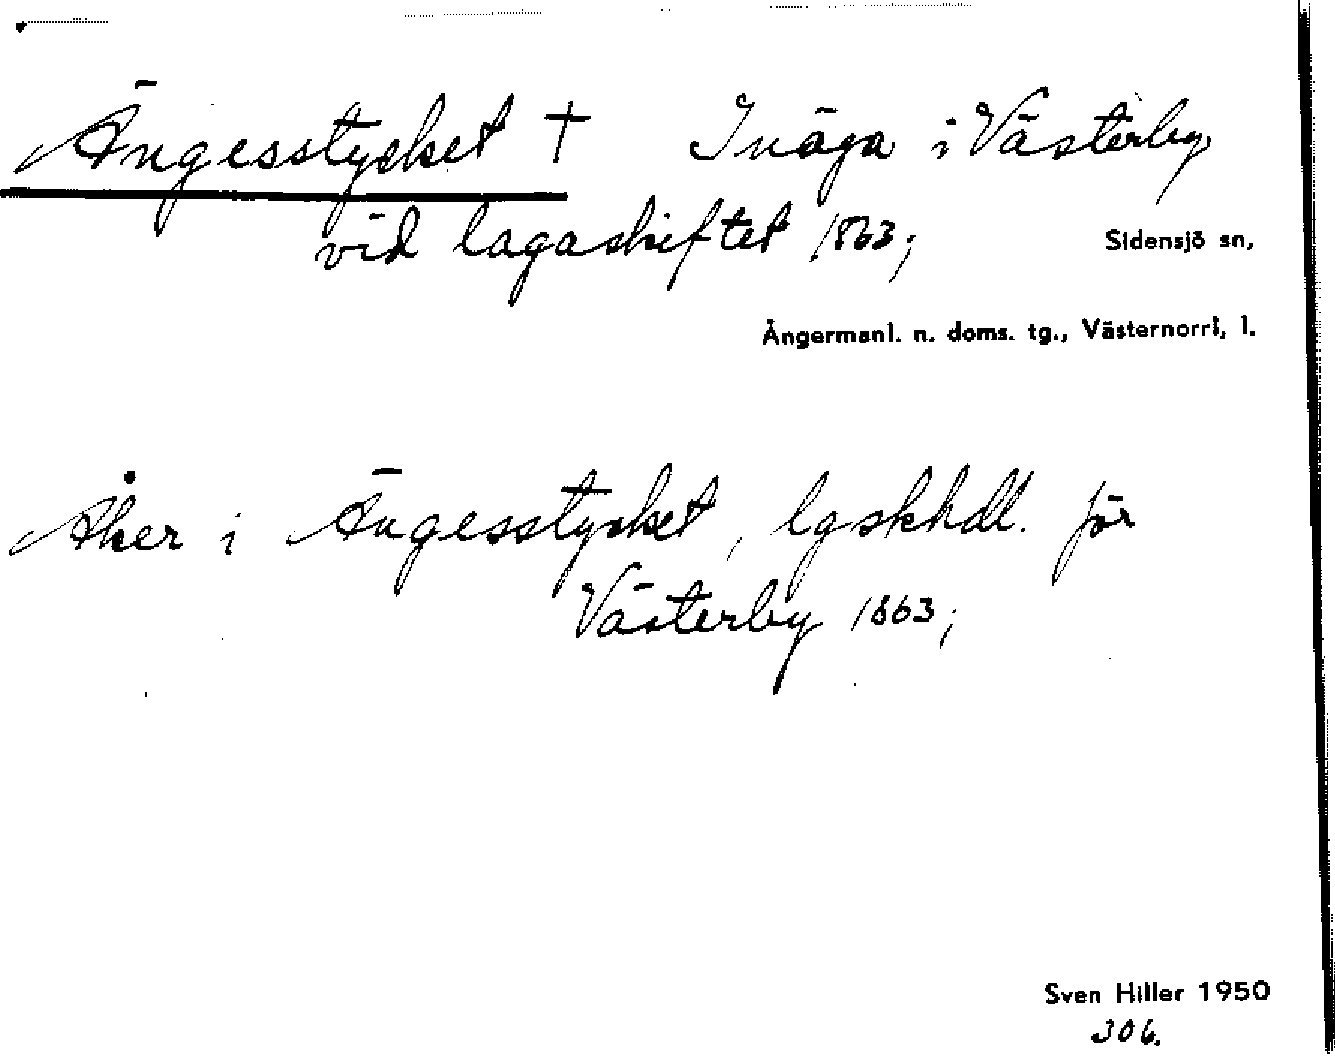 Ängesstycket † Inäga i Västerby
vid lagaskiftet 1863;
Sidensjö sn,
Ångermanl. n. doms. tg., Västernorrl. l.
Åker i Ängesstycket, lgskhdl. för
Västerby 1863;
Sven Hiller 1950
306.